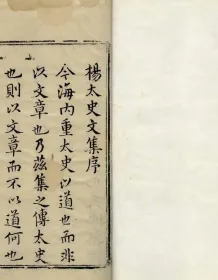 楊太史文集序
今海內重太史以道也而非
以文章也乃茲集之傳太史
也則以文章而不以道何也